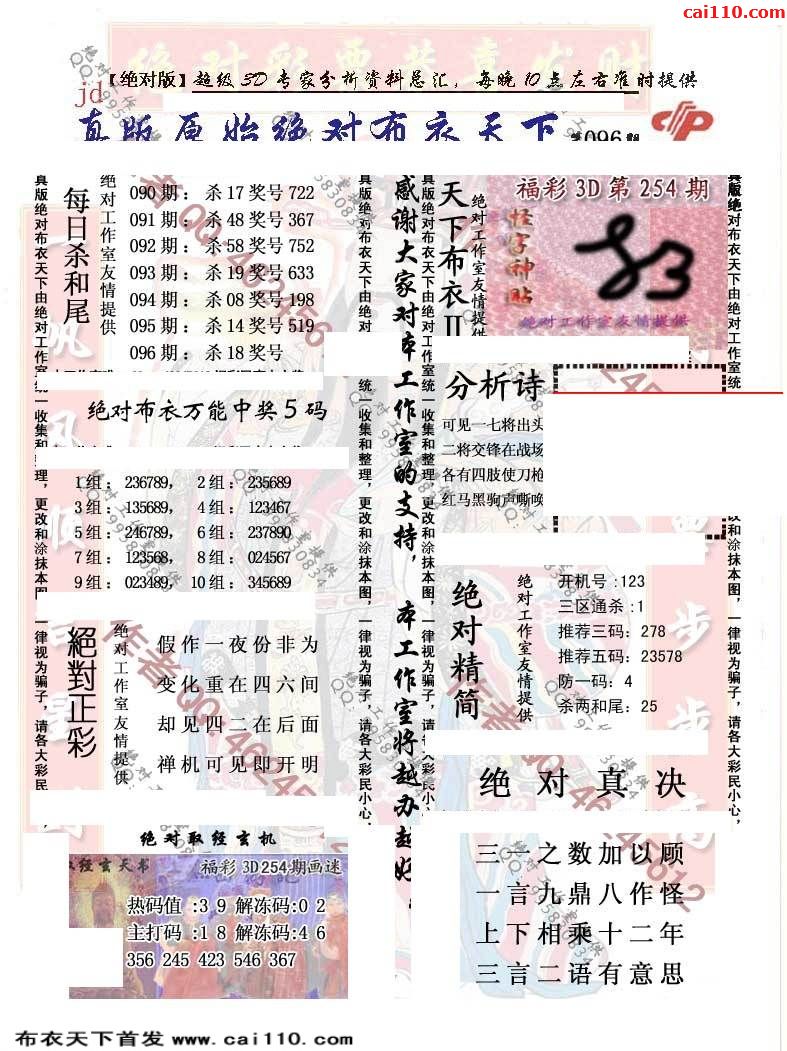 cai110.com
【绝对版】超级3D专家分析资料总汇,每晚10点左右准时提供
jd
真版原始绝对布衣天下
第096期
每日杀和尾
绝对工作室友情提供
090期：杀17奖号722
091期：杀48奖号367
092期：杀58奖号752
093期：杀19奖号633
094期：杀08奖号198
095期：杀14奖号519
096期：杀18奖号
绝对布衣万能中奖5码
1组：236789， 2组：235689
3组：135689， 4组：123467
5组：246789， 6组：237890
7组：123568， 8组：024567
9组：023489， 10组：345689
絕對正彩
绝对工作室友情提供
假作一夜份非为
变化重在四六间
却见四二在后面
禅机可见即开明
绝对取经玄机
取经玄天书
福彩3D254期画迷
热码值:39解冻码:02
主打码:18解冻码:46
356 245 423 546 367
真版绝对布衣天下由绝对
统一收集和整理，更改和涂抹本图，一律视为骗子，请各大彩民小心，
感谢大家对本工作室的支持，本工作室将越办越好。
天下布衣II
绝对工作室友情提供
福彩3D第254期
怪字神贴
绝对工作室友情提供
分析诗
可见一七将出头
二将交锋在战场
各有四肢使刀枪
红马黑驹声嘶唤
绝对精简
绝对工作室友情提供
开机号:123
三区通杀:1
推荐三码：278
推荐五码：23578
防一码：4
杀两和尾：25
绝对真决
三一之数加以顾
一言九鼎八作怪
上下相乘十二年
三言二语有意思
布衣天下首发 www.cai110.com